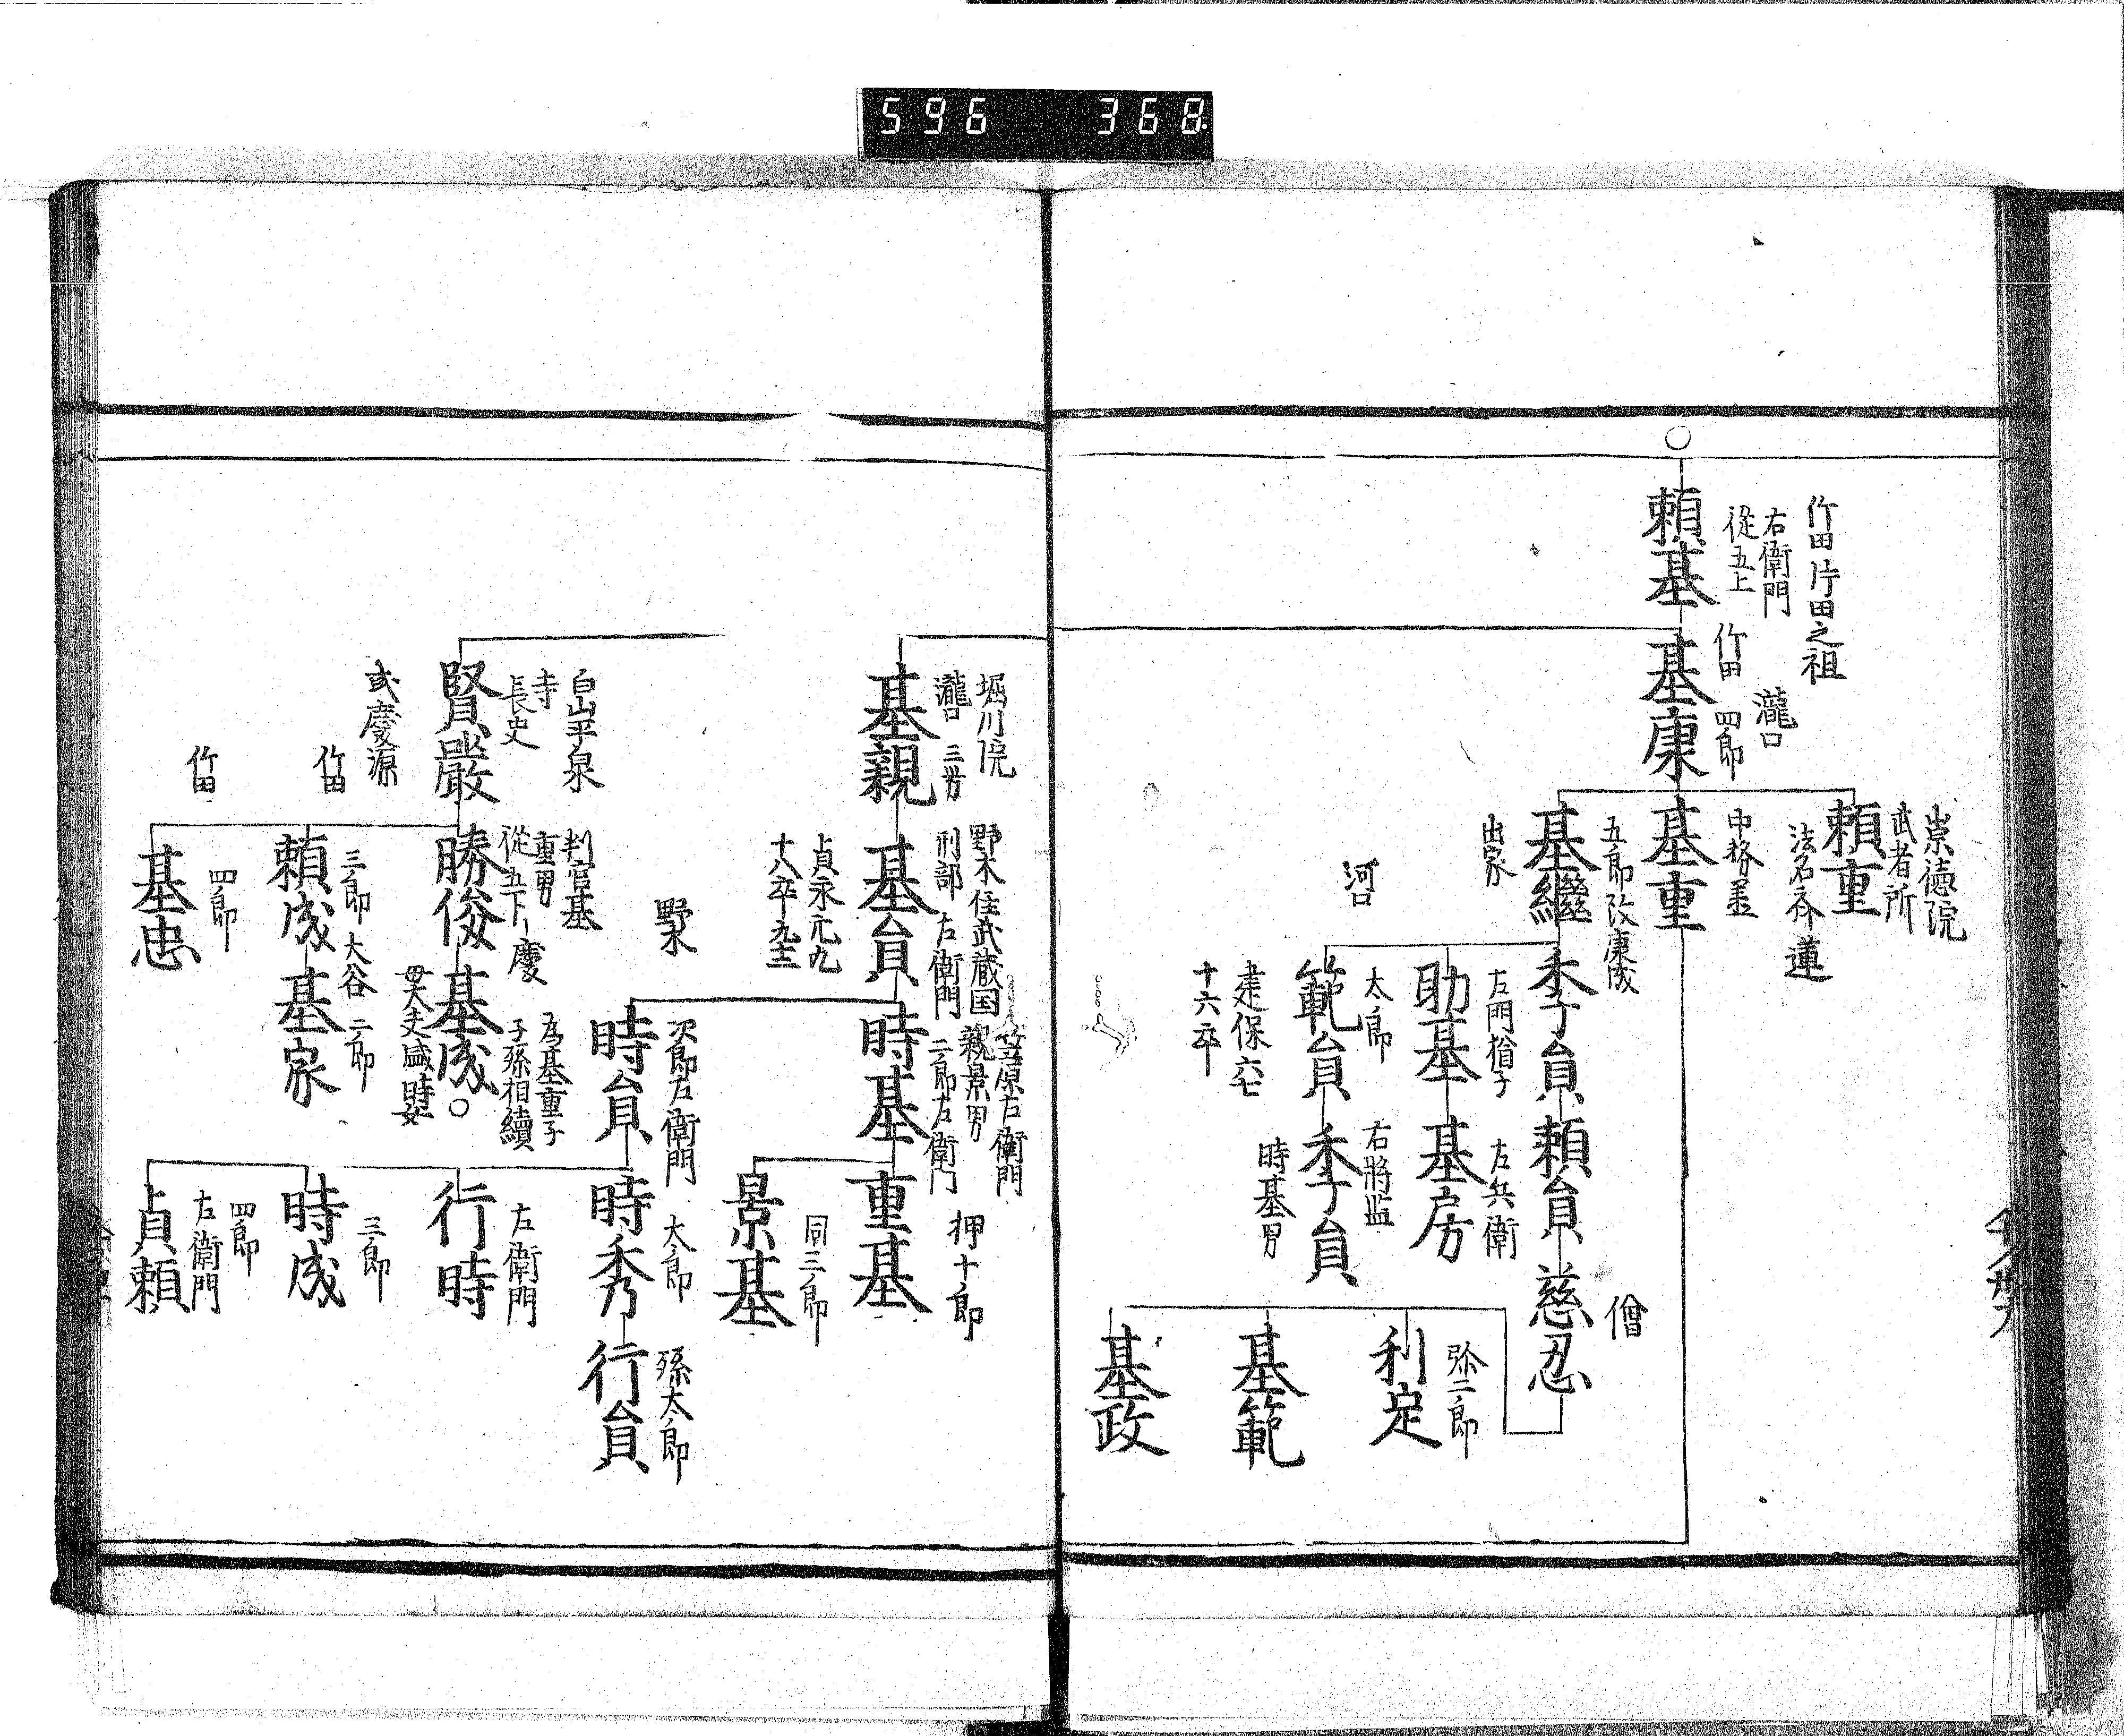 596 368
○
竹田片田之祖
右衛門
從五上
頼基
竹田 四郎
瀧口
基康
崇徳院
武者所
頼重
法名斉蓮
中務丞
基重
五郎改康成
基繼
出家
季員
頼員
僧
慈忍
左門権子
助基
左兵衛
基房
河口
太郎
範員
建保六七
十六卒
右將監
季員
時基男
弥二郎
利定
基範
基政
堀川院
瀧口
基親
野木住武蔵国
刑部 左衛門
基員
貞永元九
十八卒九十三
笠原右衛門
親景男
二郎左衛門
時基
押十郎
重基
同三郎
景基
野木
次郎左衛門
時員
太郎
時秀
孫太郎
行員
左衛門
行時
白山平泉
寺
長史
賢嚴
或慶源
判官基
重男
從五下
慶
勝俊
為基重子
子孫相續
基成○
母大夫盛時女
竹田
三郎
頼成
大谷二郎
基家
三郎
時成
四郎
左衛門
貞頼
竹田
四郎
基忠